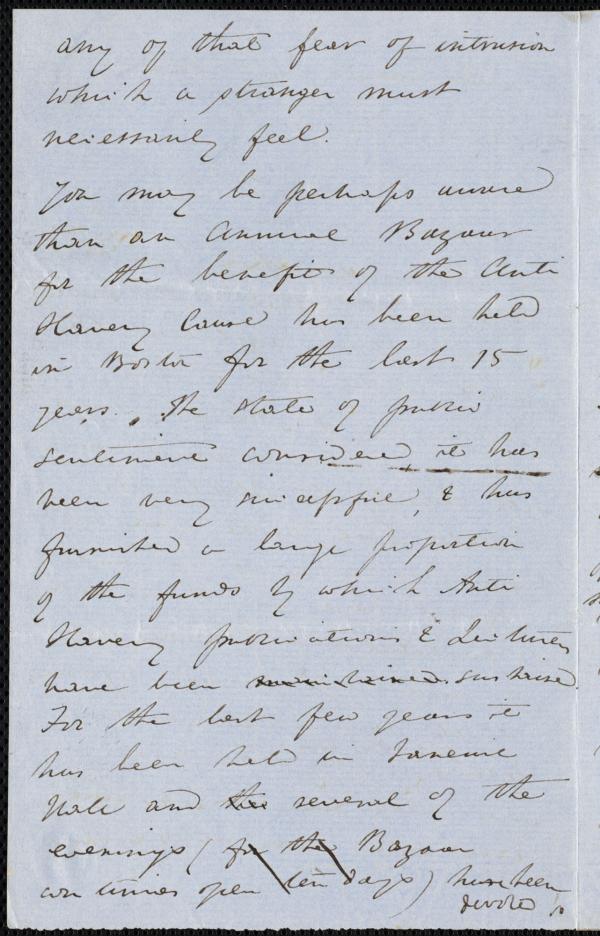 any of that fear of intrusion
which a stranger must
necessarily feel.
You may be perhaps aware
than an Annual Bazaar
for the benefit of the Anti
Slavery Cause has been held
in Boston for the last 15
years. The state of public
sentiment considered it has
been very successful, & has
furnished a large proportion
of the funds by which Anti
Slavery publications & Lectures
have been maintained sustained.
For the last few years it
has been held in Faneuil
Hall and the several of the
evenings (for the Bazaar
continues open ten days) have been
devoted to